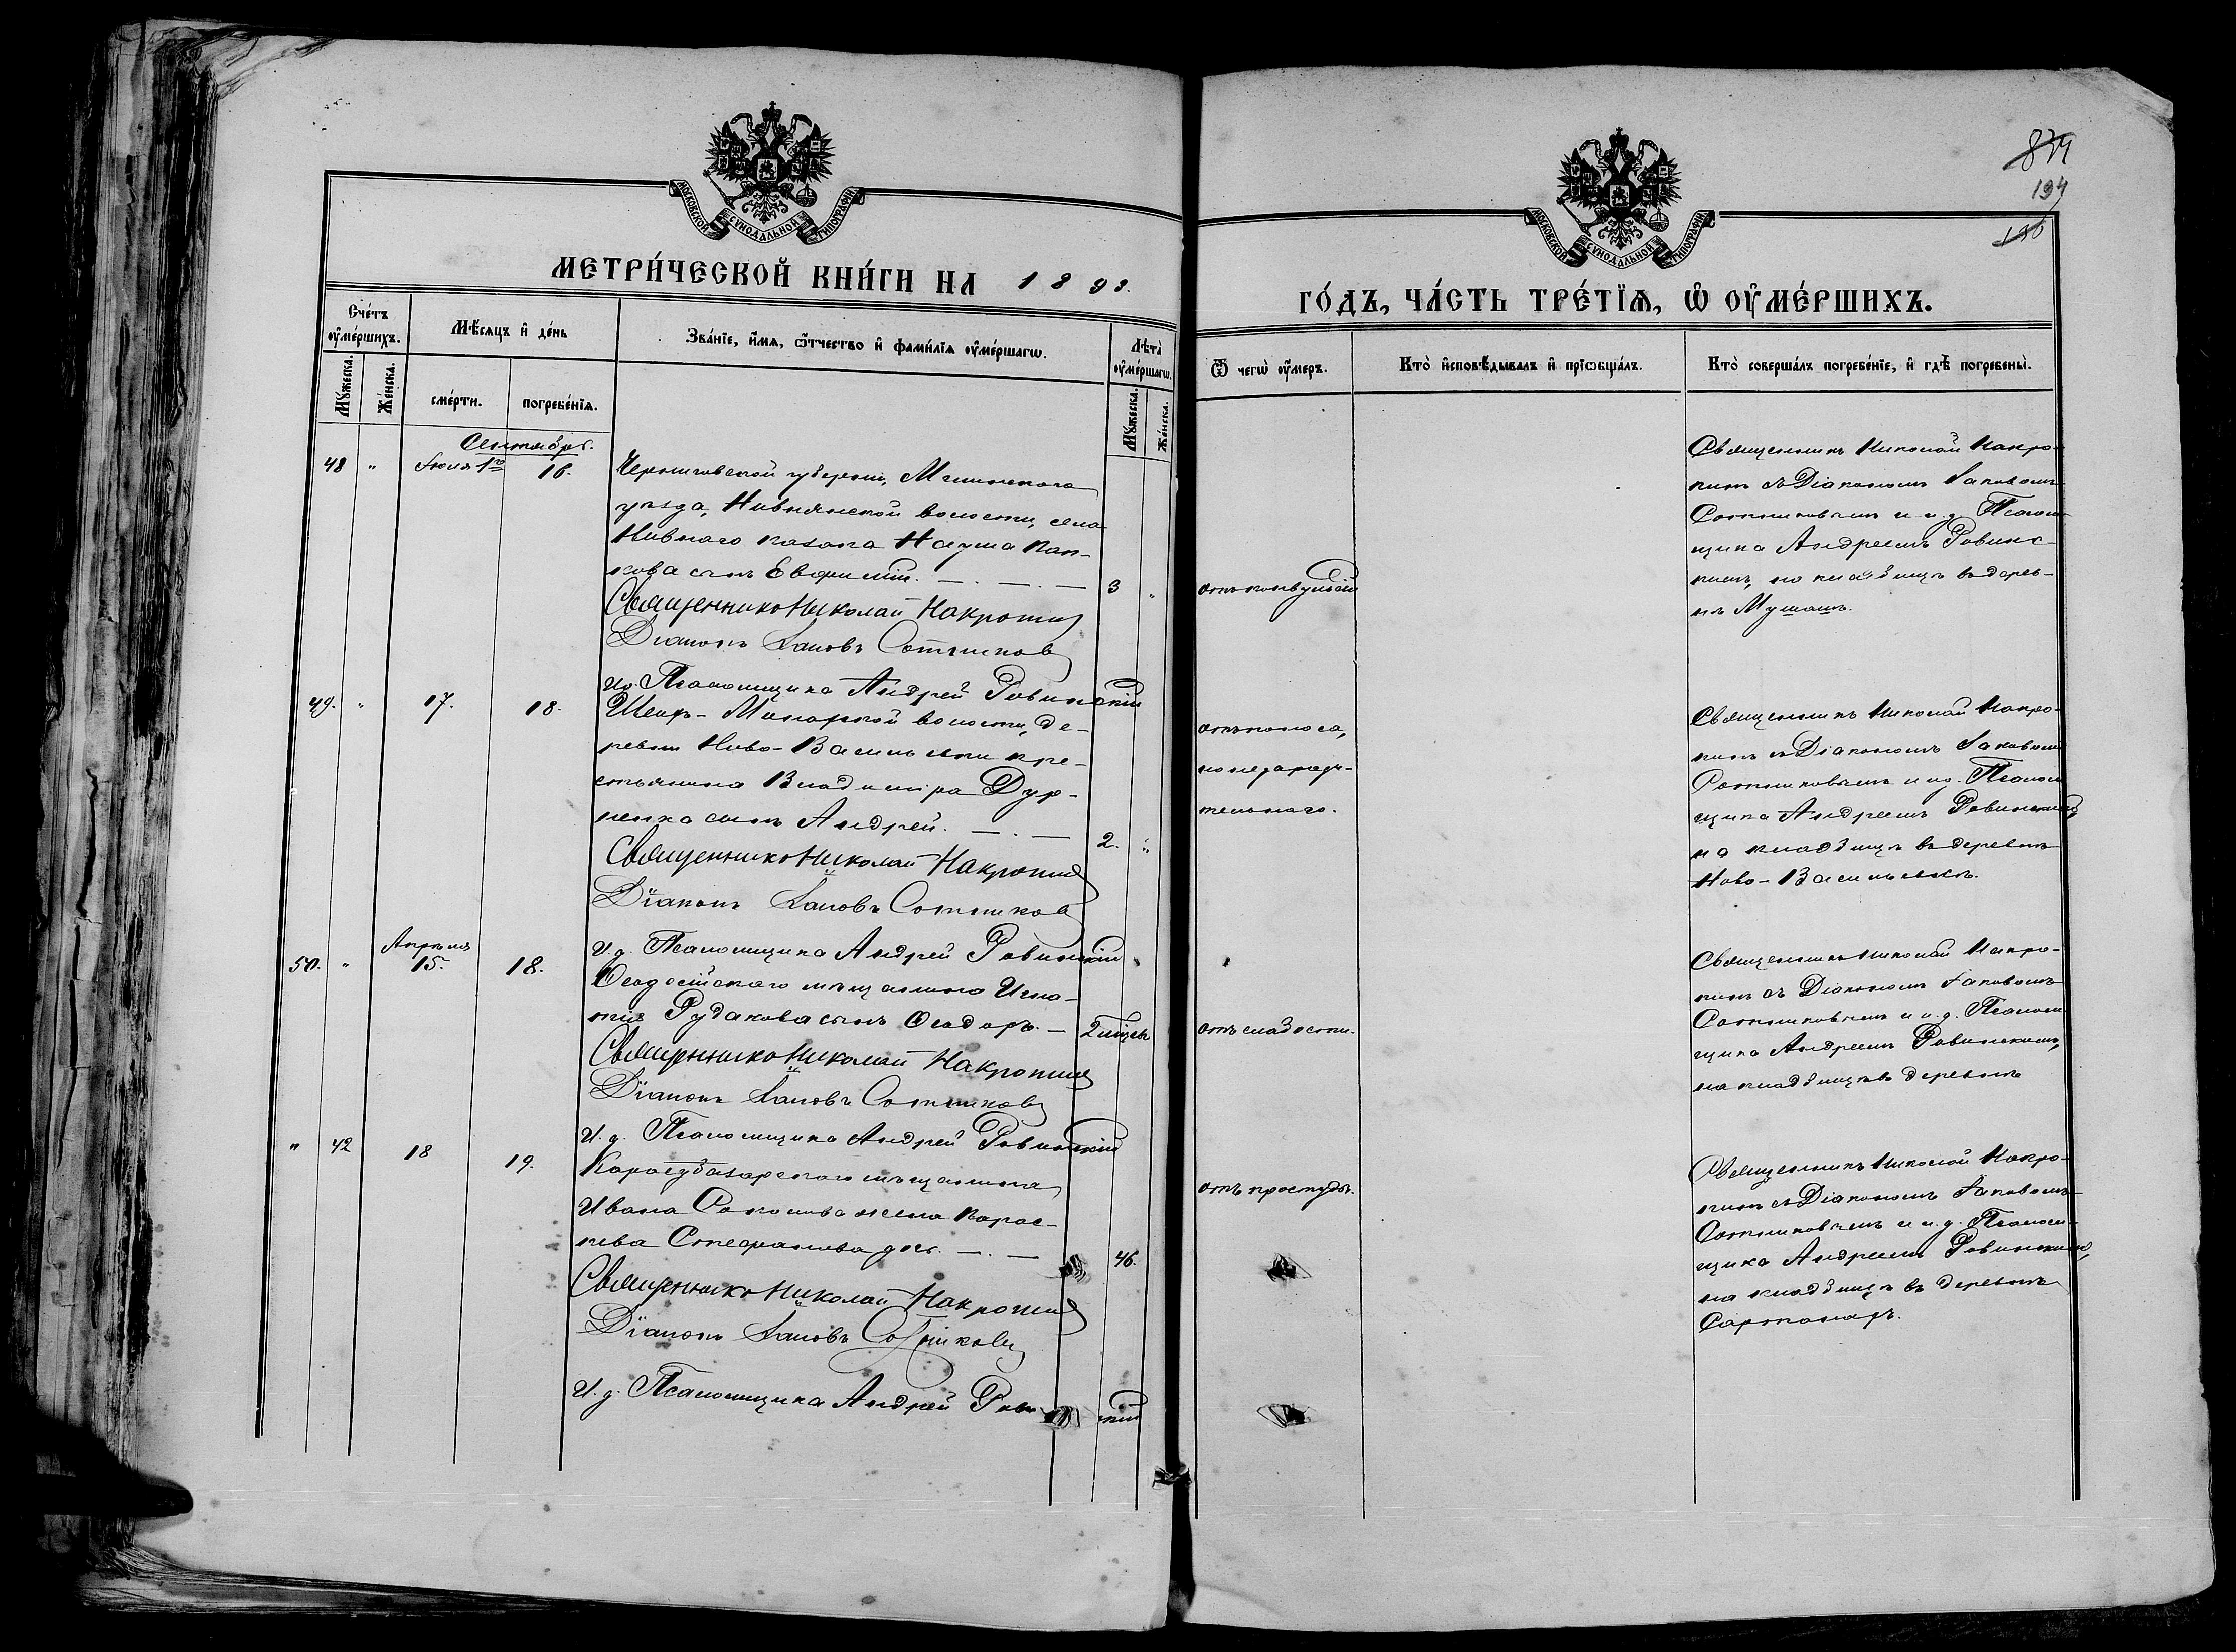 МОСКОВСКОЙ СѴНОДАЛЬНОЙ ТИПОГРАФІИ
МЕТРИ́ЧЕСКОЙ КНИ́ГИ НА 1893.
Сче́тъ оумершихъ.
Мѣ́сяцъ и де́нь
Зва́нїе, и́мя, ѻ́тчество и фами́лїя оуме́ршагѡ.
Лѣта̀ оуме́ршагѡ.
Му́жеска.
Же́нска.
сме́рти.
погребе́нїя.
Му́жеска.
Же́нска.
Сентябрь.
48 " Іюля 1го 16. Черниговской губерніи, Мглинского
уѣзда, Нивнянской волости, села
Нивнаго казака Наума Пан-
кова сынъ Евфимій. — . — . — 3 "
Священникъ Николай Накропин
Діаконъ Іаковъ Сотников
ид. Псаломщика Андрей Ровинскій
49. " 17. 18. Шейх-Монахской волости, де-
ревни Ново-Васильевки кре-
стьянина Владиміра Дур-
ненка сынъ Андрей. — . — 2. "
Священникъ Николай Накропин
Діаконъ Іаковъ Сотников
И.д. Псаломщика Андрей Ровинскій
50. " Апрѣля 15. 18. Ѳеодосійскаго мѣщанина Игна-
тія Рудакова сынъ Ѳеодоръ. — 2 мѣсец
Священникъ Николай Накропин
Діаконъ Іаковъ Сотников
И.д. Псаломщика Андрей Ровинскій
" 42 18 19. Карасубазарскаго мѣщанина
Ивана Соколова жена Парас-
кева Стефанова дочь. — . — 46.
Священникъ Николай Накропин
Діаконъ Іаковъ Сотников
И.д. Псаломщика Андрей Ров нскій
834
194
МОСКОВСКОЙ СѴНОДАЛЬНОЙ ТИПОГРАФІИ
ГО́ДЪ, ЧА́СТЬ ТРЕ́ТЇЯ, Ѡ ОУМЕ́РШИХЪ.
Ѿ чегѡ̀ оу́меръ.
Кто̀ и҆сповѣ́дывалъ и прїѡбща́лъ.
Кто̀ соверша́лъ погребе́нїе, и гдѣ̀ погребены̀.
отъ конвульсій
Священникъ Николай Накро-
пинъ съ Діакономъ Іаковомъ
Сотниковымъ и и.д. Псалом-
щика Андреемъ Ровинс-
кимъ, на кладбищѣ въ дерев-
нѣ Мушашъ.
отъ поноса,
но незарази-
тельнаго.
Священникъ Николай Накро-
пинъ съ Діакономъ Іаковомъ
Сотниковымъ и ид. Псалом
щика Андреемъ Ровинскимъ,
на кладбищѣ въ деревнѣ
Ново-Васильевкѣ.
отъ слабости.
Священникъ Николай Накро-
пинъ съ Діакономъ Іаковомъ
Сотниковымъ и и.д. Псалом
щика Андреемъ Ровинскимъ,
на кладбищѣ въ деревнѣ
отъ простуды.
Священникъ Николай Накро-
пинъ съ Діакономъ Іаковомъ
Сотниковымъ и и.д. Псалом-
щика Андреемъ Ровинскимъ,
на кладбищѣ въ деревнѣ
Сартанаръ.